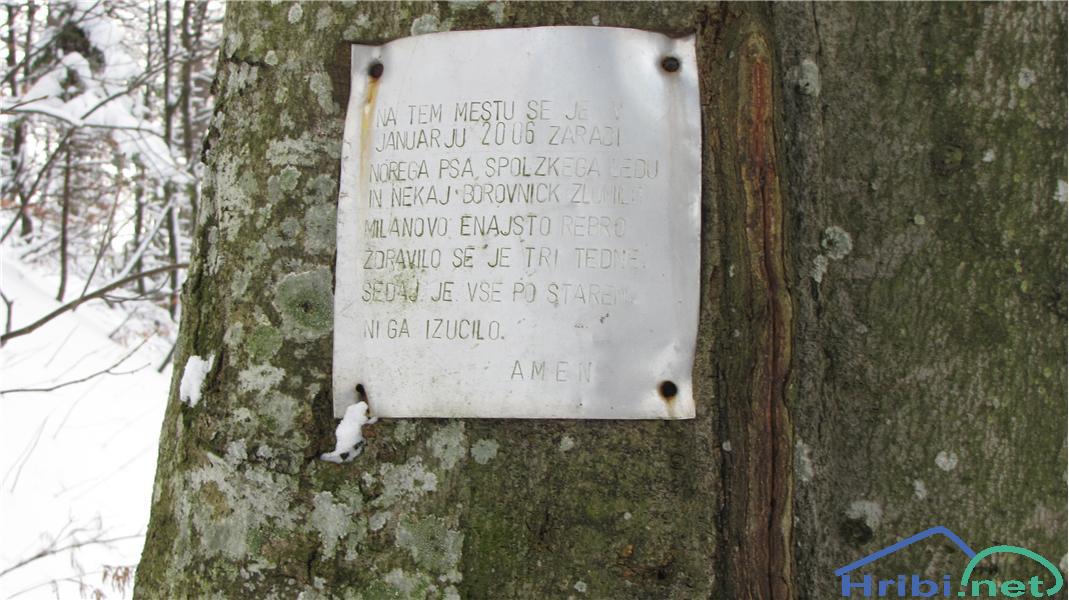 NA TEM MESTU SE JE V
JANUARJU 2006 ZARADI
NOREGA PSA, SPOLZKEGA LEDU
IN NEKAJ BOROVNICK ZLOMILO
MILANOVO ENAJSTO REBRO.
ZDRAVILO SE JE TRI TEDNE.
SEDAJ JE VSE PO STAREM.
NI GA IZUCILO.
AMEN
Hribi.net